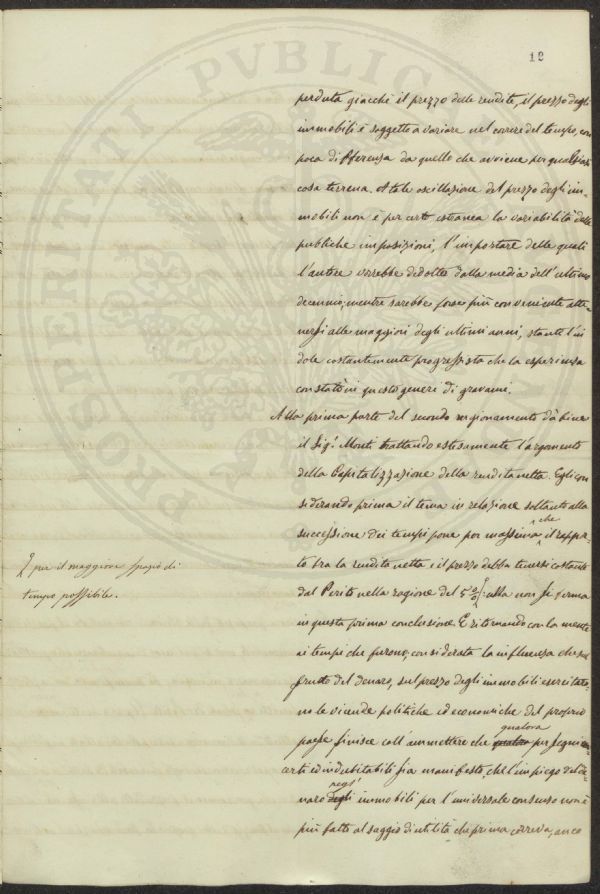 12
perduta giacchè il prezzo delle rendite, il prezzo degli
immobili è soggetto a variare nel correre del tempo, con
poca differenza da quello che avviene per qualsiasi
cosa terrena. A tale oscillazione del prezzo degli im-
mobili non è per certo estranea la variabilità delle
pubbliche imposizioni, l'importare delle quali
l'autore vorrebbe dedotto dalla media dell'ultimo
decennio; mentre sarebbe forse più conveniente atte-
nersi alle maggiori degli ultimi anni, stante l'in
dole costantemente progressista che la esperienza
constatò in questo genere di gravami.
Alla prima parte del secondo ragionamento dà bene
il Sigr Monti trattando estesamente l'argomento
della Capitalizzazione della rendita netta. Egli con
siderando prima il tema in relazione soltanto alla
successione dei tempi pone per massima che il rappor-
to tra la rendita netta e il prezzo debba tenersi costante
dal Perito nella ragione del 5 %: nella non si ferma
per il maggiore spazio di
tempo possibile.
in questa prima conclusione. E ritornando con la mente
ai tempi che furono; considerata la influenza che sul
frutto del denaro, sul prezzo degli immobili esercitaro-
no le vicende politiche ed economiche del proprio
paese finisce coll'ammettere che qualora per segni
certi ed indubitabili sia manifesto, che l'impiego del de-
naro negl' immobili per l'universale consenso non è
più fatto al saggio di utilità che prima correva, anco
PROSPERITATI PVBLICAE